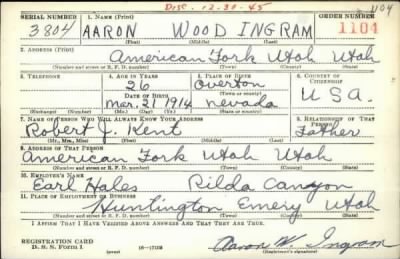 Disc. 12-30-45
1104
SERIAL NUMBER 1. NAME (Print) ORDER NUMBER
3804 AARON WOOD INGRAM 1104
(First) (Middle) (Last)
2. ADDRESS (Print)
American Fork Utah Utah
(Number and street or R. F. D. number) (Town) (County) (State)
3. TELEPHONE 4. AGE IN YEARS 5. PLACE OF BIRTH 6. COUNTRY OF CITIZENSHIP
26 Overton
DATE OF BIRTH (Town or county)
Mar. 21 1914 Nevada U S A.
(Exchange) (Number) (Mo.) (Day) (Yr.) (State or country)
7. NAME OF PERSON WHO WILL ALWAYS KNOW YOUR ADDRESS 8. RELATIONSHIP OF THAT PERSON
Robert J. Kent Father
(Mr., Mrs., Miss) (First) (Middle) (Last)
9. ADDRESS OF THAT PERSON
American Fork Utah Utah
(Number and street or R. F. D. number) (Town) (County) (State)
10. EMPLOYER'S NAME
Earl Hales Rilda Canyon
11. PLACE OF EMPLOYMENT OR BUSINESS
Huntington Emery Utah
(Number and street or R. F. D. number) (Town) (County) (State)
I AFFIRM THAT I HAVE VERIFIED ABOVE ANSWERS AND THAT THEY ARE TRUE.
REGISTRATION CARD
D. S. S. Form 1 (over) 16-17105 Aaron W. Ingram
(Registrant's signature)